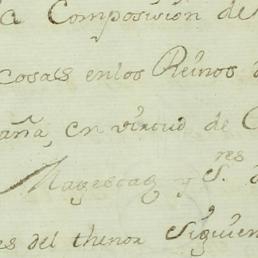 la Composision de
cosas en los Reinos
aña, en virtud de
Magestad y S.res
es del thenor siguien